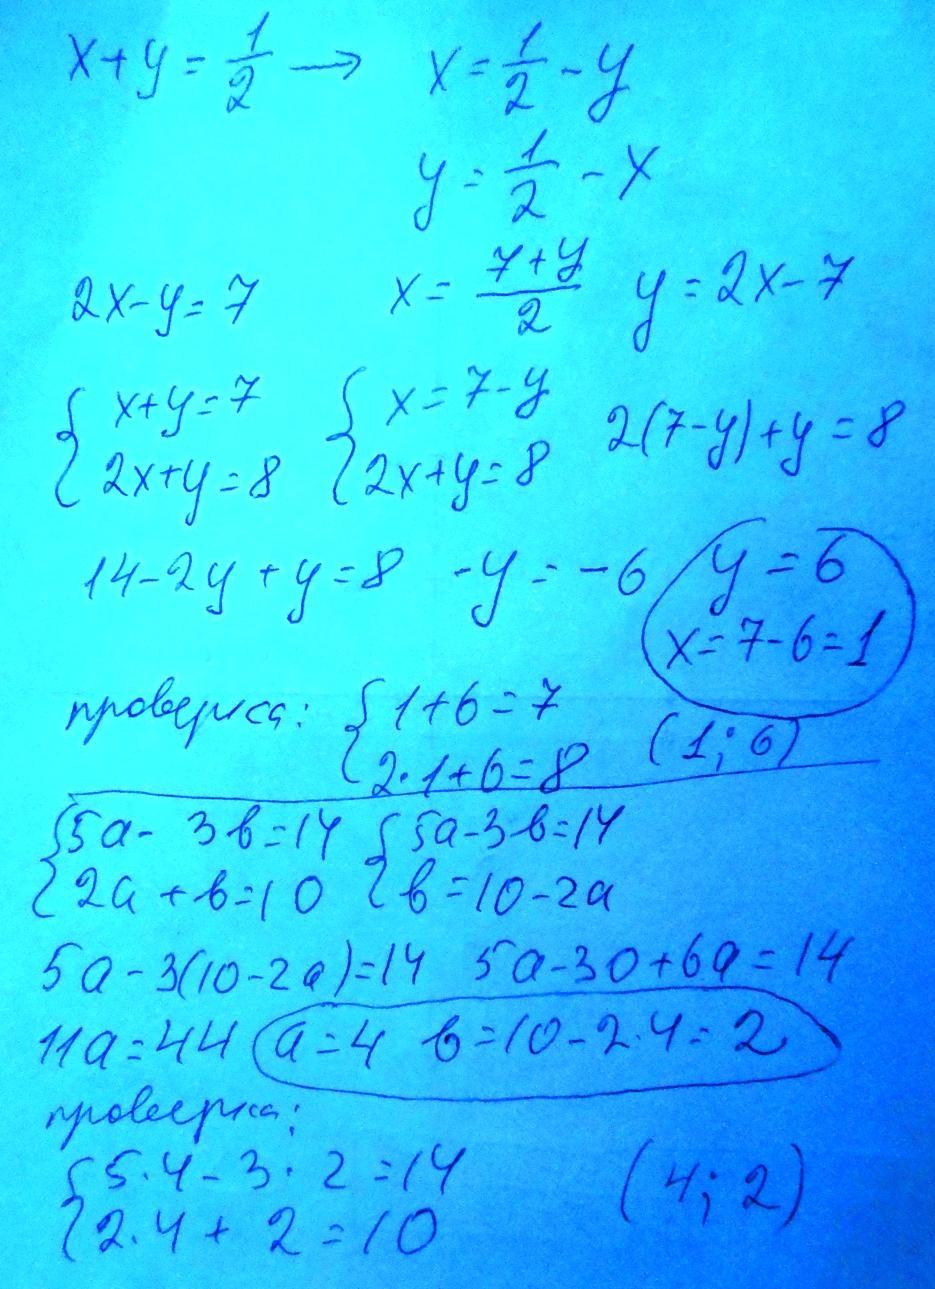 x+y=1/2 → x=1/2-y
y=1/2-x
2x-y=7 x=(7+y)/2 y=2x-7
{x+y=7 {x=7-y 2(7-y)+y=8
{2x+y=8 {2x+y=8
14-2y+y=8 -y=-6 y=6
x=7-6=1
проверка: {1+6=7
{2·1+6=8 (1;6)
{5a-3b=14 {5a-3b=14
{2a+b=10 {b=10-2a
5a-3(10-2a)=14 5a-30+6a=14
11a=44 a=4 b=10-2·4=2
проверка:
{5·4-3·2=14 (4;2)
{2·4+2=10